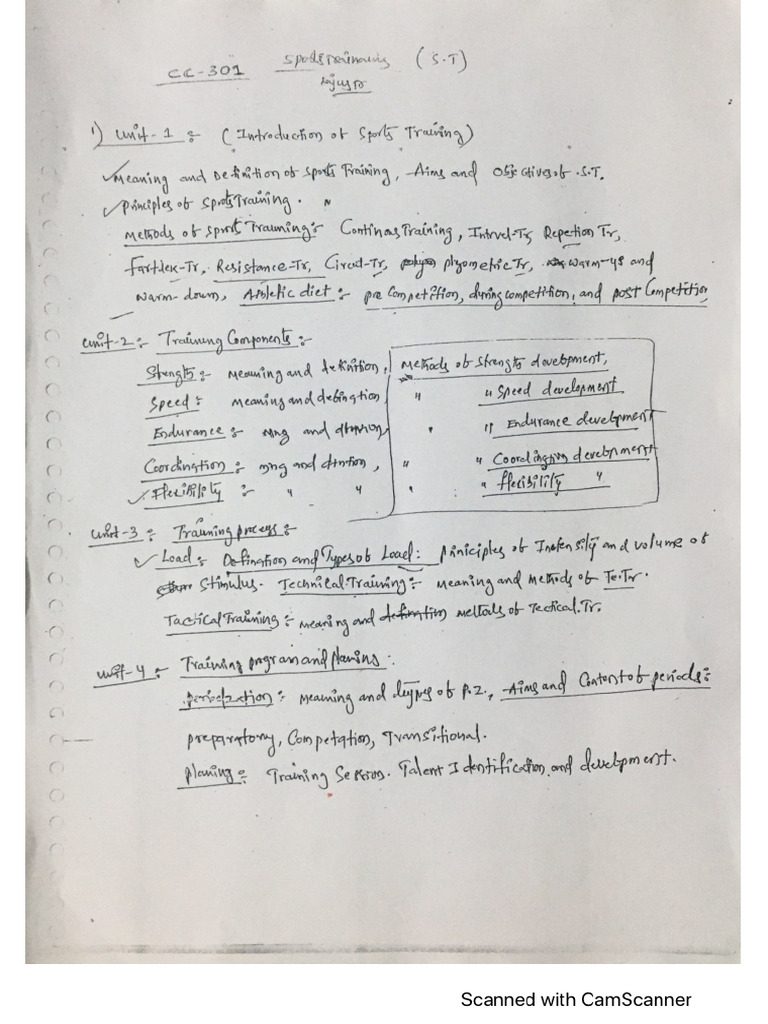 CC-301 Sports Training (S.T)
1) Unit-1 :- (Introduction of Sports Training)
✓Meaning and Definition of Sports Training, Aims and Objectives of S.T.
✓Principles of Sports Training.
Methods of Sports Training:- Continous Training, Intrvel-Tr, Repetion Tr,
Fartlek-Tr, Resistance-Tr, Circuit-Tr, plyometric Tr, warm-up and
warm-down, Athletic diet :- pre Competition, during competition, and post Competition
Unit-2 :- Training Components :-
Strength :- meaning and definition, Methods of Strength development,
Speed :- meaning and defination " " Speed development
Endurance :- mng and dfinion " " Endurance development
Coordination :- mng and dfntion, " " Coordination development
✓Flexibility :- " " " " flexibility "
Unit-3 :- Training process :-
✓Load :- Defination and Types of Load: Priniciples of Intensity and volume of
Stimulus. Technical Training :- meaning and Methods of Te.Tr.
Tactical Training :- meaning and definition methods of Tectical.Tr.
Unit-4 :- Training program and planing :-
periodization :- meaning and types of P.Z., Aims and Content of periods :-
preparatory, Competation, Transitional.
planing :- Training Session. Talent Identification and development.
Scanned with CamScanner